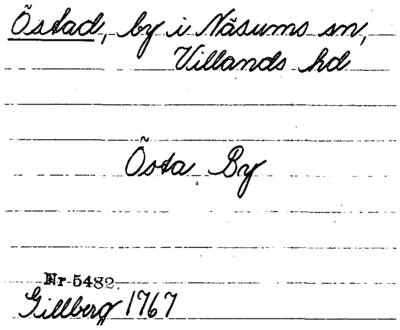 Östad, by i Näsums sn,
Villands hd
Östa By
Nr 5482.
Gillberg 1767